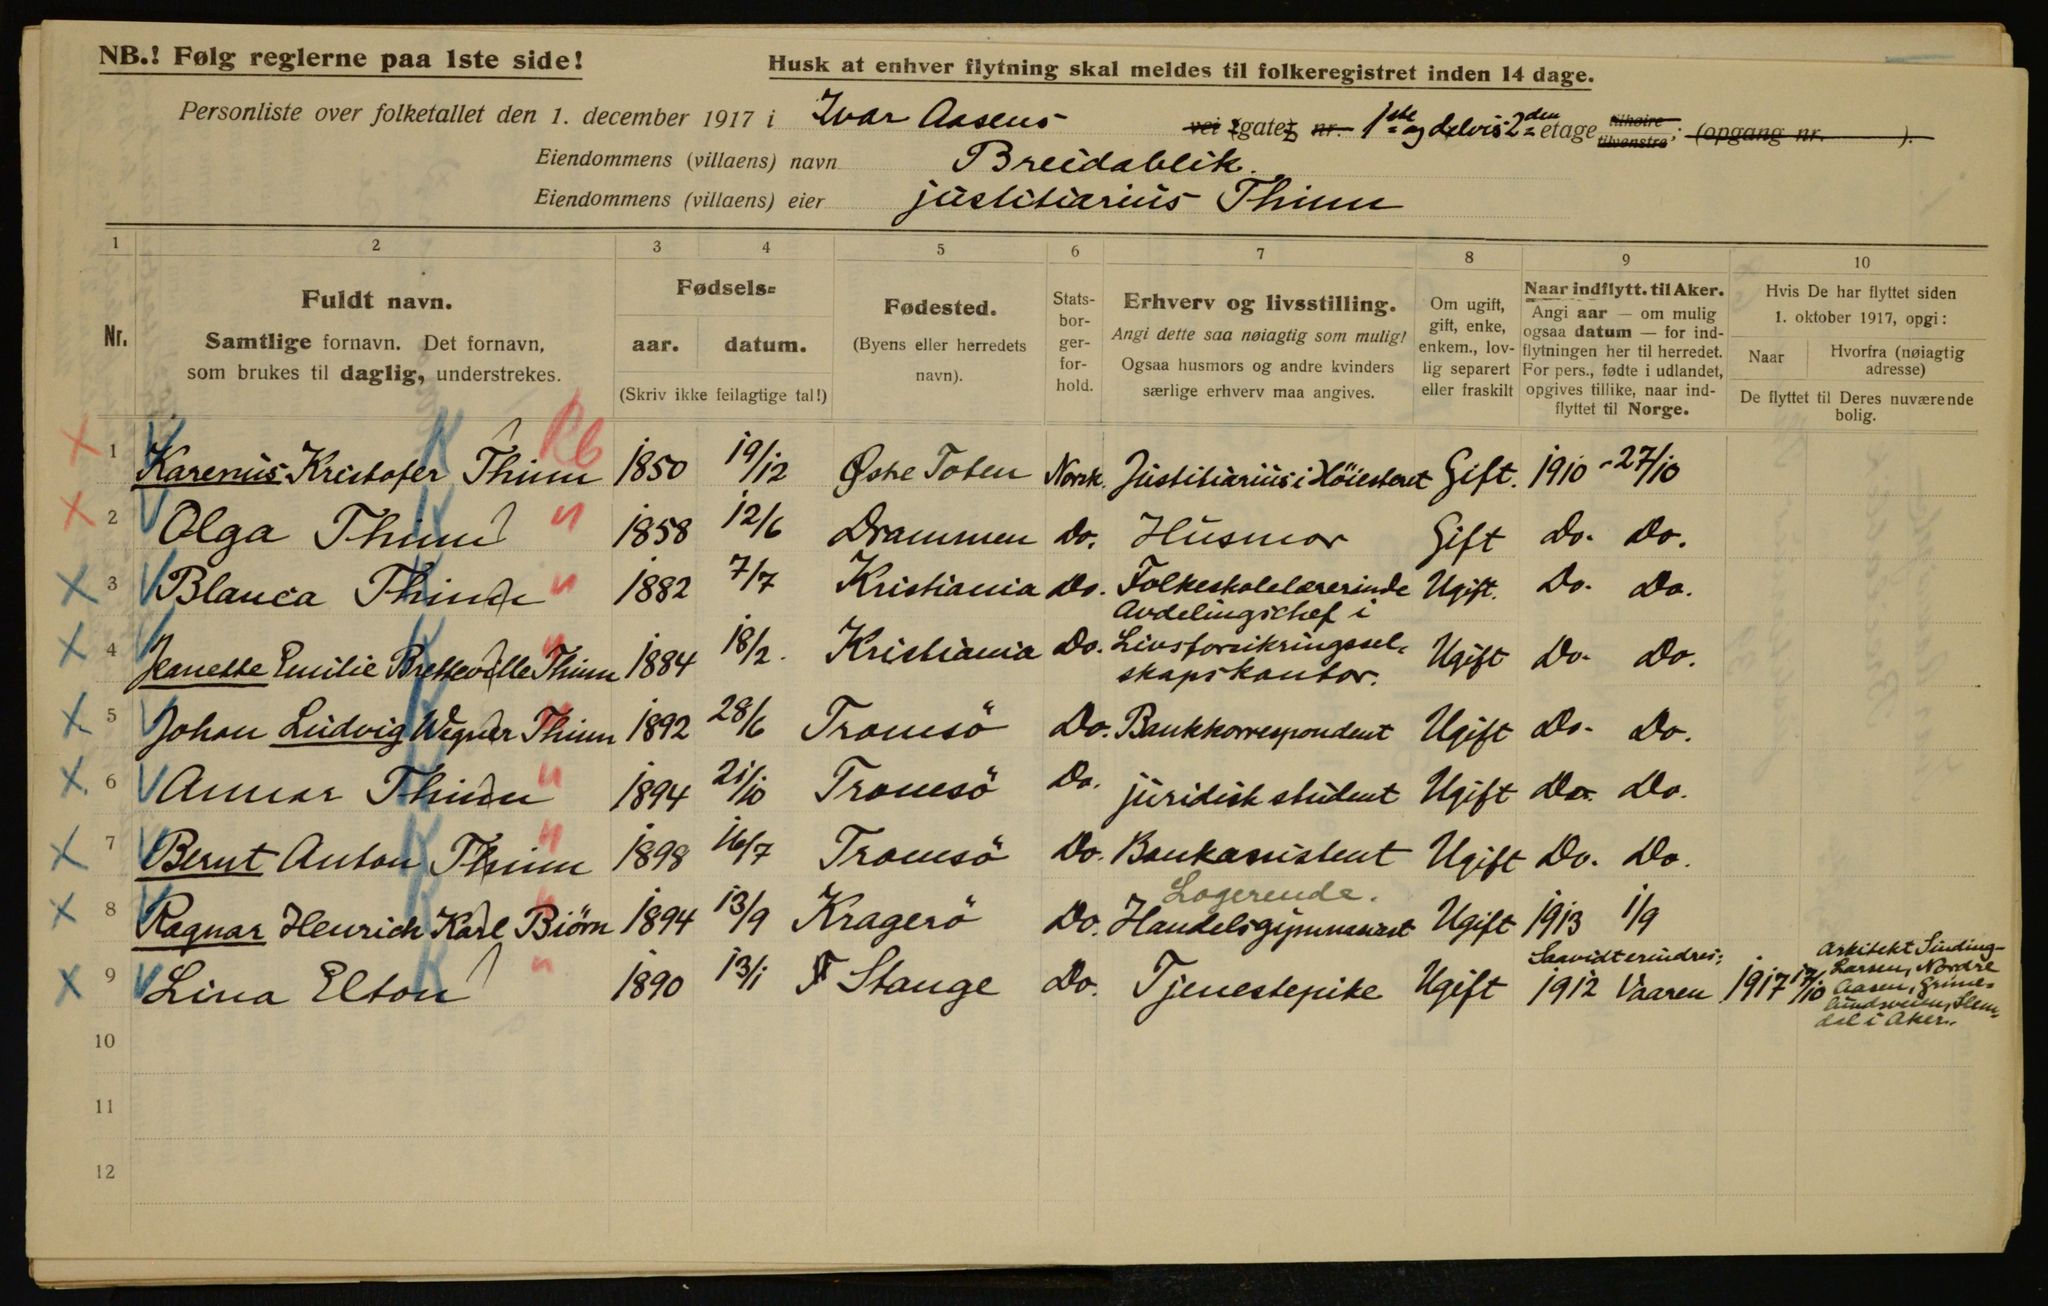 NB.! Følg reglerne paa 1ste side!
Husk at enhver flytning skal meldes til folkeregistret inden 14 dage.
Personliste over folketallet den 1. december 1917 i Ivar Aasens vei gate nr. 1ste og delvis 2den etage tilhøire tilvenstre; (opgang nr. ).
Eiendommens (villaens) navn Breidablik.
Eiendommens (villaens) eier justitiarius Thinn
1 2 3 4 5 6 7 8 9 10
Nr.
Fuldt navn.
Samtlige fornavn. Det fornavn,
som brukes til daglig, understrekes.
Fødsels=
aar. datum.
(Skriv ikke feilagtige tal!)
Fødested.
(Byens eller herredets
navn).
Stats-
bor-
ger-
for-
hold.
Erhverv og livsstilling.
Angi dette saa nøiagtig som mulig!
Ogsaa husmors og andre kvinders
særlige erhverv maa angives.
Om ugift,
gift, enke,
enkem., lov-
lig separert
eller fraskilt
Naar indflytt. til Aker.
Angi aar — om mulig
ogsaa datum — for ind-
flytningen her til herredet.
For pers., fødte i udlandet,
opgives tillike, naar ind-
flyttet til Norge.
Hvis De har flyttet siden
1. oktober 1917, opgi:
Naar
Hvorfra (nøiagtig
adresse)
De flyttet til Deres nuværende
bolig.
1 Karenus Kristofer Thinn 1850 19/12 Østre Toten Norsk. Justitiarius i Høiesteret Gift. 1910 - 27/10
2 Olga Thinn " 1858 12/6 Drammen Do. Husmor Gift Do. Do.
3 Blanca Thinn " 1882 7/7 Kristiania Do. Folkeskolelærerinde Ugift. Do. Do.
4 Jeanette Emilie Bretteville Thinn " 1884 18/2. Kristiania Do. Avdelingschef i
Livsforsikringssel-
skapskontor. Ugift Do. Do.
5 Johan Ludvig Wegner Thinn " 1892 28/6 Tromsö Do. Bankkorrespondent Ugift Do. Do.
6 Annar Thinn " 1894 21/10 Tromsö Do. juridisk student Ugift Do. Do.
7 Bernt Anton Thinn " 1898 16/7 Tromsö Do. Bankassistent Ugift Do. Do.
Logerende.
8 Ragnar Henrich Karl Biörn " 1894 13/9 Kragerö Do. Handelsgymnasiast Ugift 1913 1/9
Saavidt erindres:
9 Lina Elton " 1890 13/1 Stange Do. Tjenestepike Ugift 1912 Vaaren 1917 17/10 Arkitekt Sinding-
Larsen, Nordre
Aasen, Grime-
lundsveien, Slem-
dal i Aker.
10
11
12